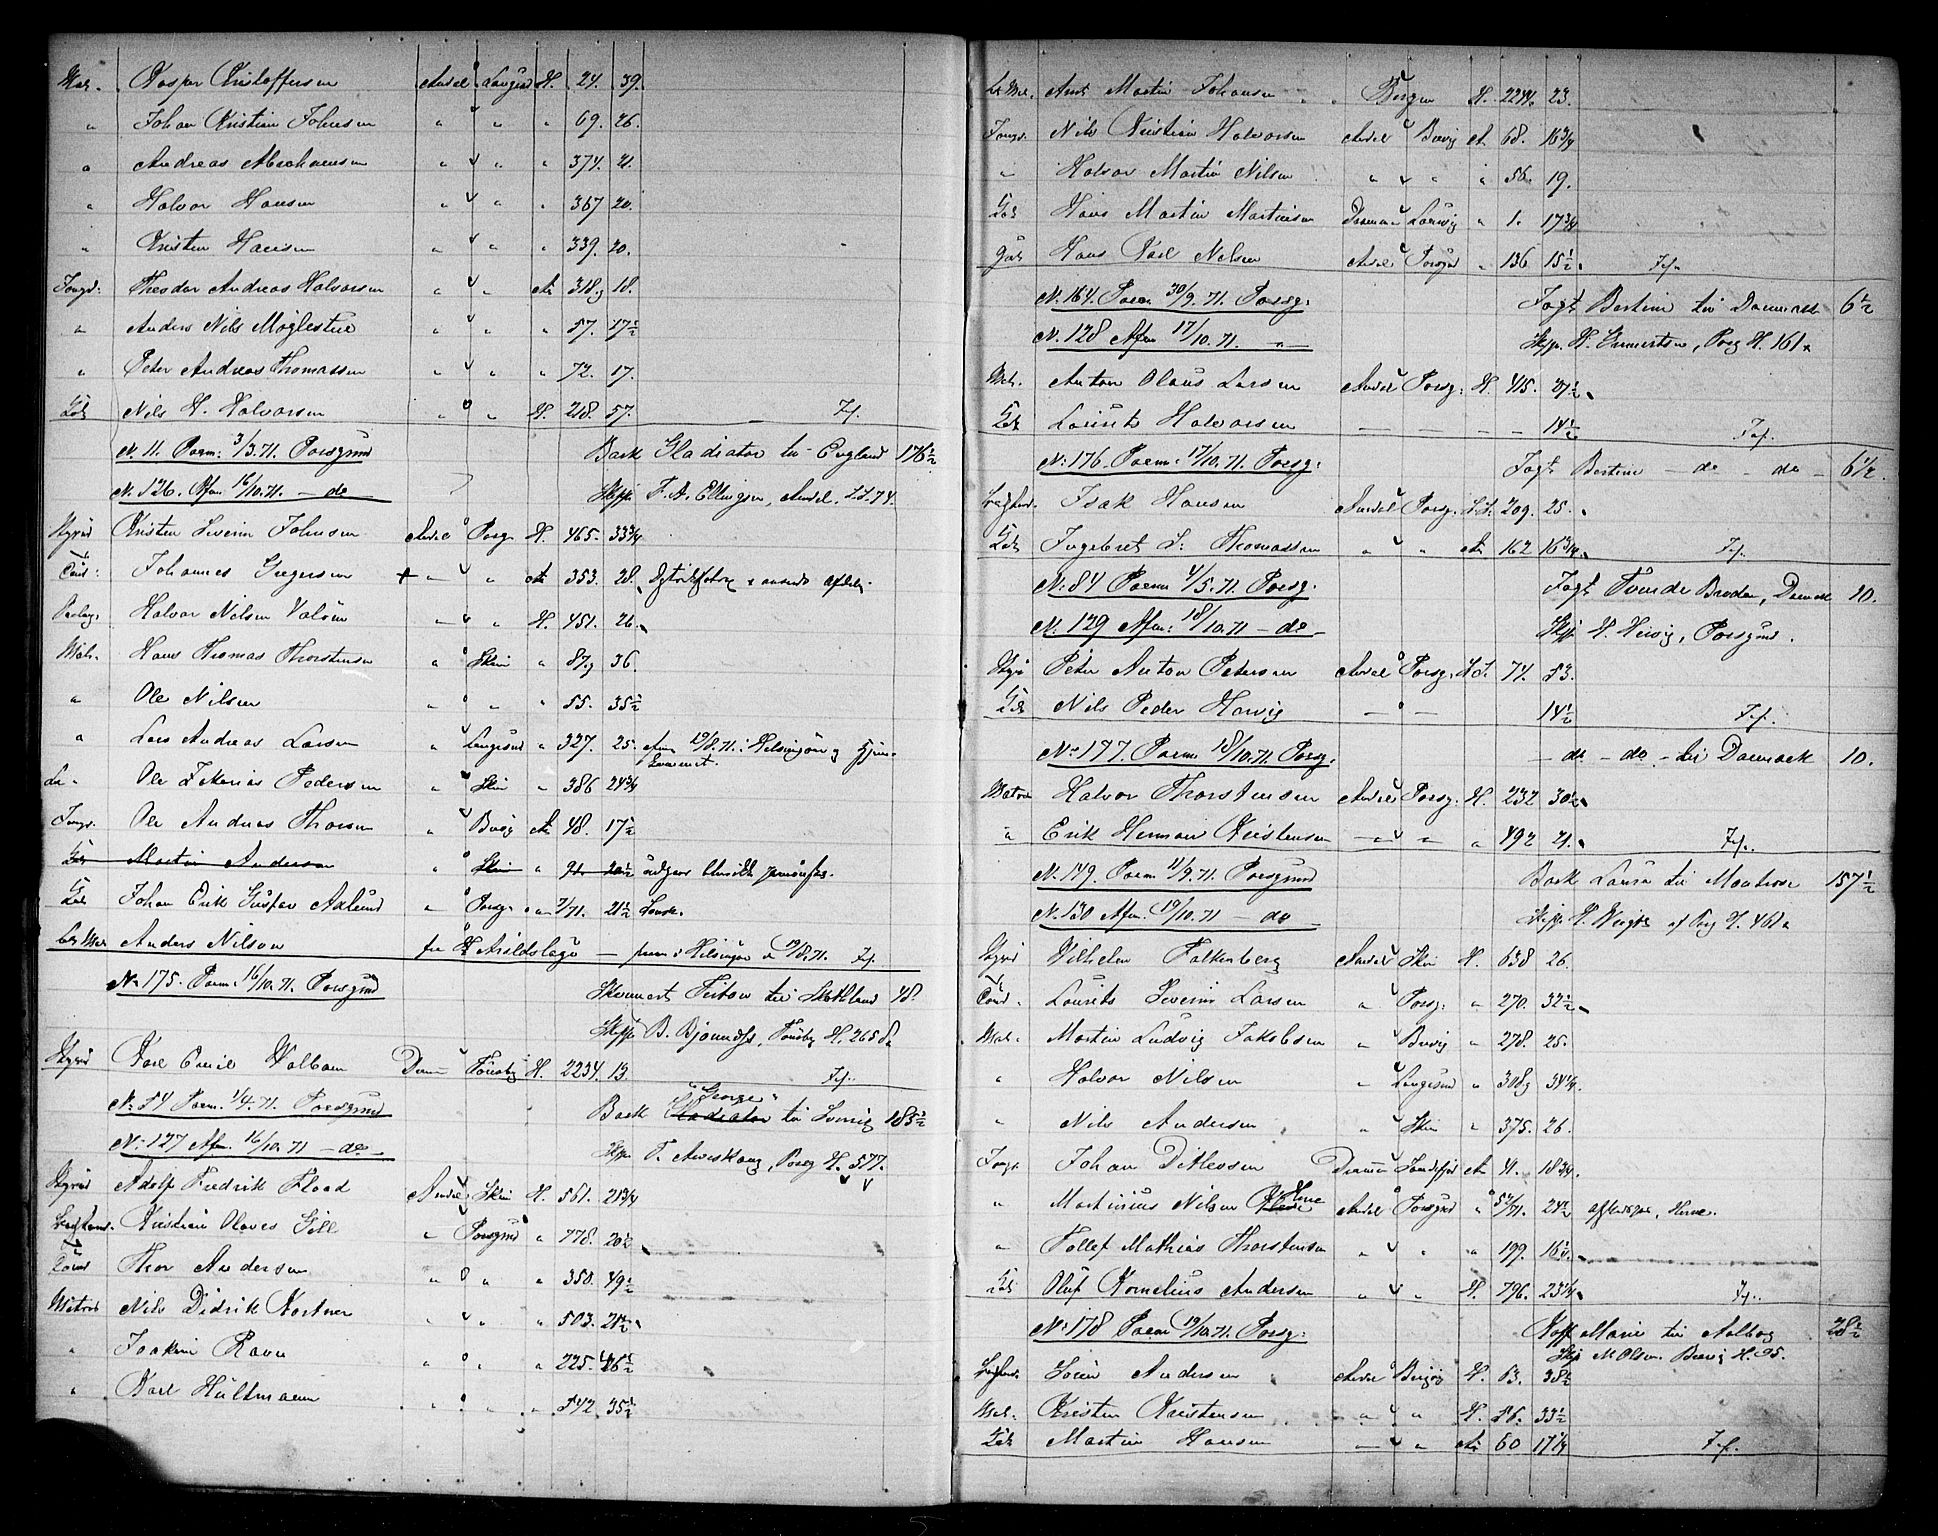 Mat. Kaspar Kristoffersen Arndal Langesd H. 24. 39.
„ Johan Kristian Johnsen „ „ „ 69. 26.
„ Andreas Abrahamsen „ „ „ 374. 21.
„ Halvor Hansen „ „ „ 367 20.
„ Kristen Hansen „ „ „ 339. 20.
Jungd. Theodor Andreas Halvorsen „ „ An 318g 18.
„ Anders Nils Møglestue „ „ „ 57. 17½
„ Peter Andreas Thomassen „ „ „ 72. 17.
Kok Nils H. Halvorsen „ „ H. 218. 57. Ff.
N. 11. Paam. 3/3.71. Porsgrund Bark Gladiator til England 176½
N. 126. Afm. 16/10.71. – do – Skppr F. A. Ellingsen, Arndal, LL 74.
Styrmd Kristen Severin Johnsen Arndal Porsg. H. 465. 33¾
Tømd. Johannes Gregersen + „ „ An 353. 28.
Halvor Nilsen Valøen „ „ H. 451. 26.
Matr. Hans Thomas Thorstensen „ Skien „ 87g 36.
„ Ole Nilsen „ „ „ 55. 35½
„ Lars Andreas Larsen „ Langesund „ 327. 25. afm. 19/8.71. i Helsingør
Le „ Ole Zakarias Pedersen „ Skien „ 386 24¾
Jungd. Ole Andreas Thorsen „ Brevig An 48. 17½
Kok Martin Andersen „ Skien „ 91. 20½
Kok Johan Erik Gustav Axlund „ Porsg. „ 7/71. 21½ Svensk.
Le Mat Anders Nilson fra Arildsläge – paam. i Helsingør d. 19/8.71. Ff.
N. 175. Paam. 16/10.71. Porsgrund Skonnert Triton til Skotland 48.
Skppr B. Bjønnes, Tønsbg H. 265 8a
Styrmd Karl Emil Dram Tønsbg H. 2234. 13. Ff.
N. 54 Paam. 1/4.71. Porsgrund Bark Gladiator „George“ til Sverrig 185½
N. 127 Afm. 16/10.71 – do – Skppr T. Porsg H. 577.
Styrmd Adolf Fredrik Flood Arndal Skien H. 561. 21¾
Kristian Olaves Gill „ Porsgrund „ 778. 20½
Tømd Thor Andersen „ „ „ 350. 49½
Matros Nils Didrik Kortner „ „ „ 503. 21½
„ Joakim Ravn „ „ „ 225. 46½
„ Karl Hultmann „ „ „ 542. 35½
Le Mat. Ant Martin Johansen Bergen H. 2244. 23.
Jungd. Nils Kristian Halvorsen Arndal Brevig An 68. 16¾
„ Halvor Martin Nilsen „ „ „ 56. 19.
Kok Hans Martin Martinsen Drammen Laurvig „ 1. 17¾
Gut Hans Karl Nilsen Arndal Porsgrd „ 136 15½ Ff.
N. 164. Paam 30/9.71. Porsg. Jagt Bertine til Danmark 6½
N. 128 Afm 17/10.71. – „ – Skppr. H. Porsg H. 161a
Mat. Anton Olaus Larsen Arndal Porsg. H. 415. 27½
Kok Laurits Halvorsen – – – – 14½ Ff.
N. 176. Paam. 17/10.71. Porsg. Jagt Bertine – do – do – 6½
Isak Hansen Arndal Porsg. LL 209. 25.
Kok Ingebret L. Thomassen „ „ An 162 16¾ Ff.
N. 84 Paam 4/5.71. Porsg. Jagt Tvende Brødre, Danmark 10.
N. 129 Afm. 18/10.71 – do – Skppr H. Porsgrund.
Styrm Peter Anton Petersen Arndal Porsg. LL. 74. 53.
Kok Nils Peder – – 14½ Ff.
N. 177. Paam. 18/10.71 Porsg. – do – do – til Danmark 10.
Matros Halvor Thorstensen Arndal Porsg. H. 232 30½
„ Erik Herman Kristensen – „ – „ „ 492 21. Ff.
N. 149. Paam 11/9.71. Porsgrund Bark Laura til Montrose 157½
N. 130 Afm. 19/10.71 – do – Skppr H. af Porsg H. 461a
Styrmd Vilhelm Falkenberg Arndal Skien H. 638 26.
Tømd. Laurits Severin Larsen „ Porsg. „ 270. 32½
Mat. Martin Ludvig Jakobsen „ Brevig „ 278. 25.
„ Halvor Nilsen „ Langesund „ 308g 34¼
„ Nils Andersen „ Skien „ 375. 26.
Jungd Johan Ditlessen Drammen Sandefjd An 41. 18¾
„ Martinius Nilsen Herre Arndal Porsgrund „ 52/71. 24½
„ Tollef Mathias Thorstensen „ „ „ 199. 16½
Kok Oluf Kornelius Andersen „ „ H. 796. 23¼ Ff.
N. 178 Paam 19/10.71. Porsg. Koff Marie til Aalborg 28½
Skp M Olsen. Brevig H. 95.
Søren Andersen Arndal Brevig H. 63. 38½
Mat. Kristen Kristensen „ „ H. 56. 33½
Kok Martin Hansen – „ An 60 17¼ Ff.